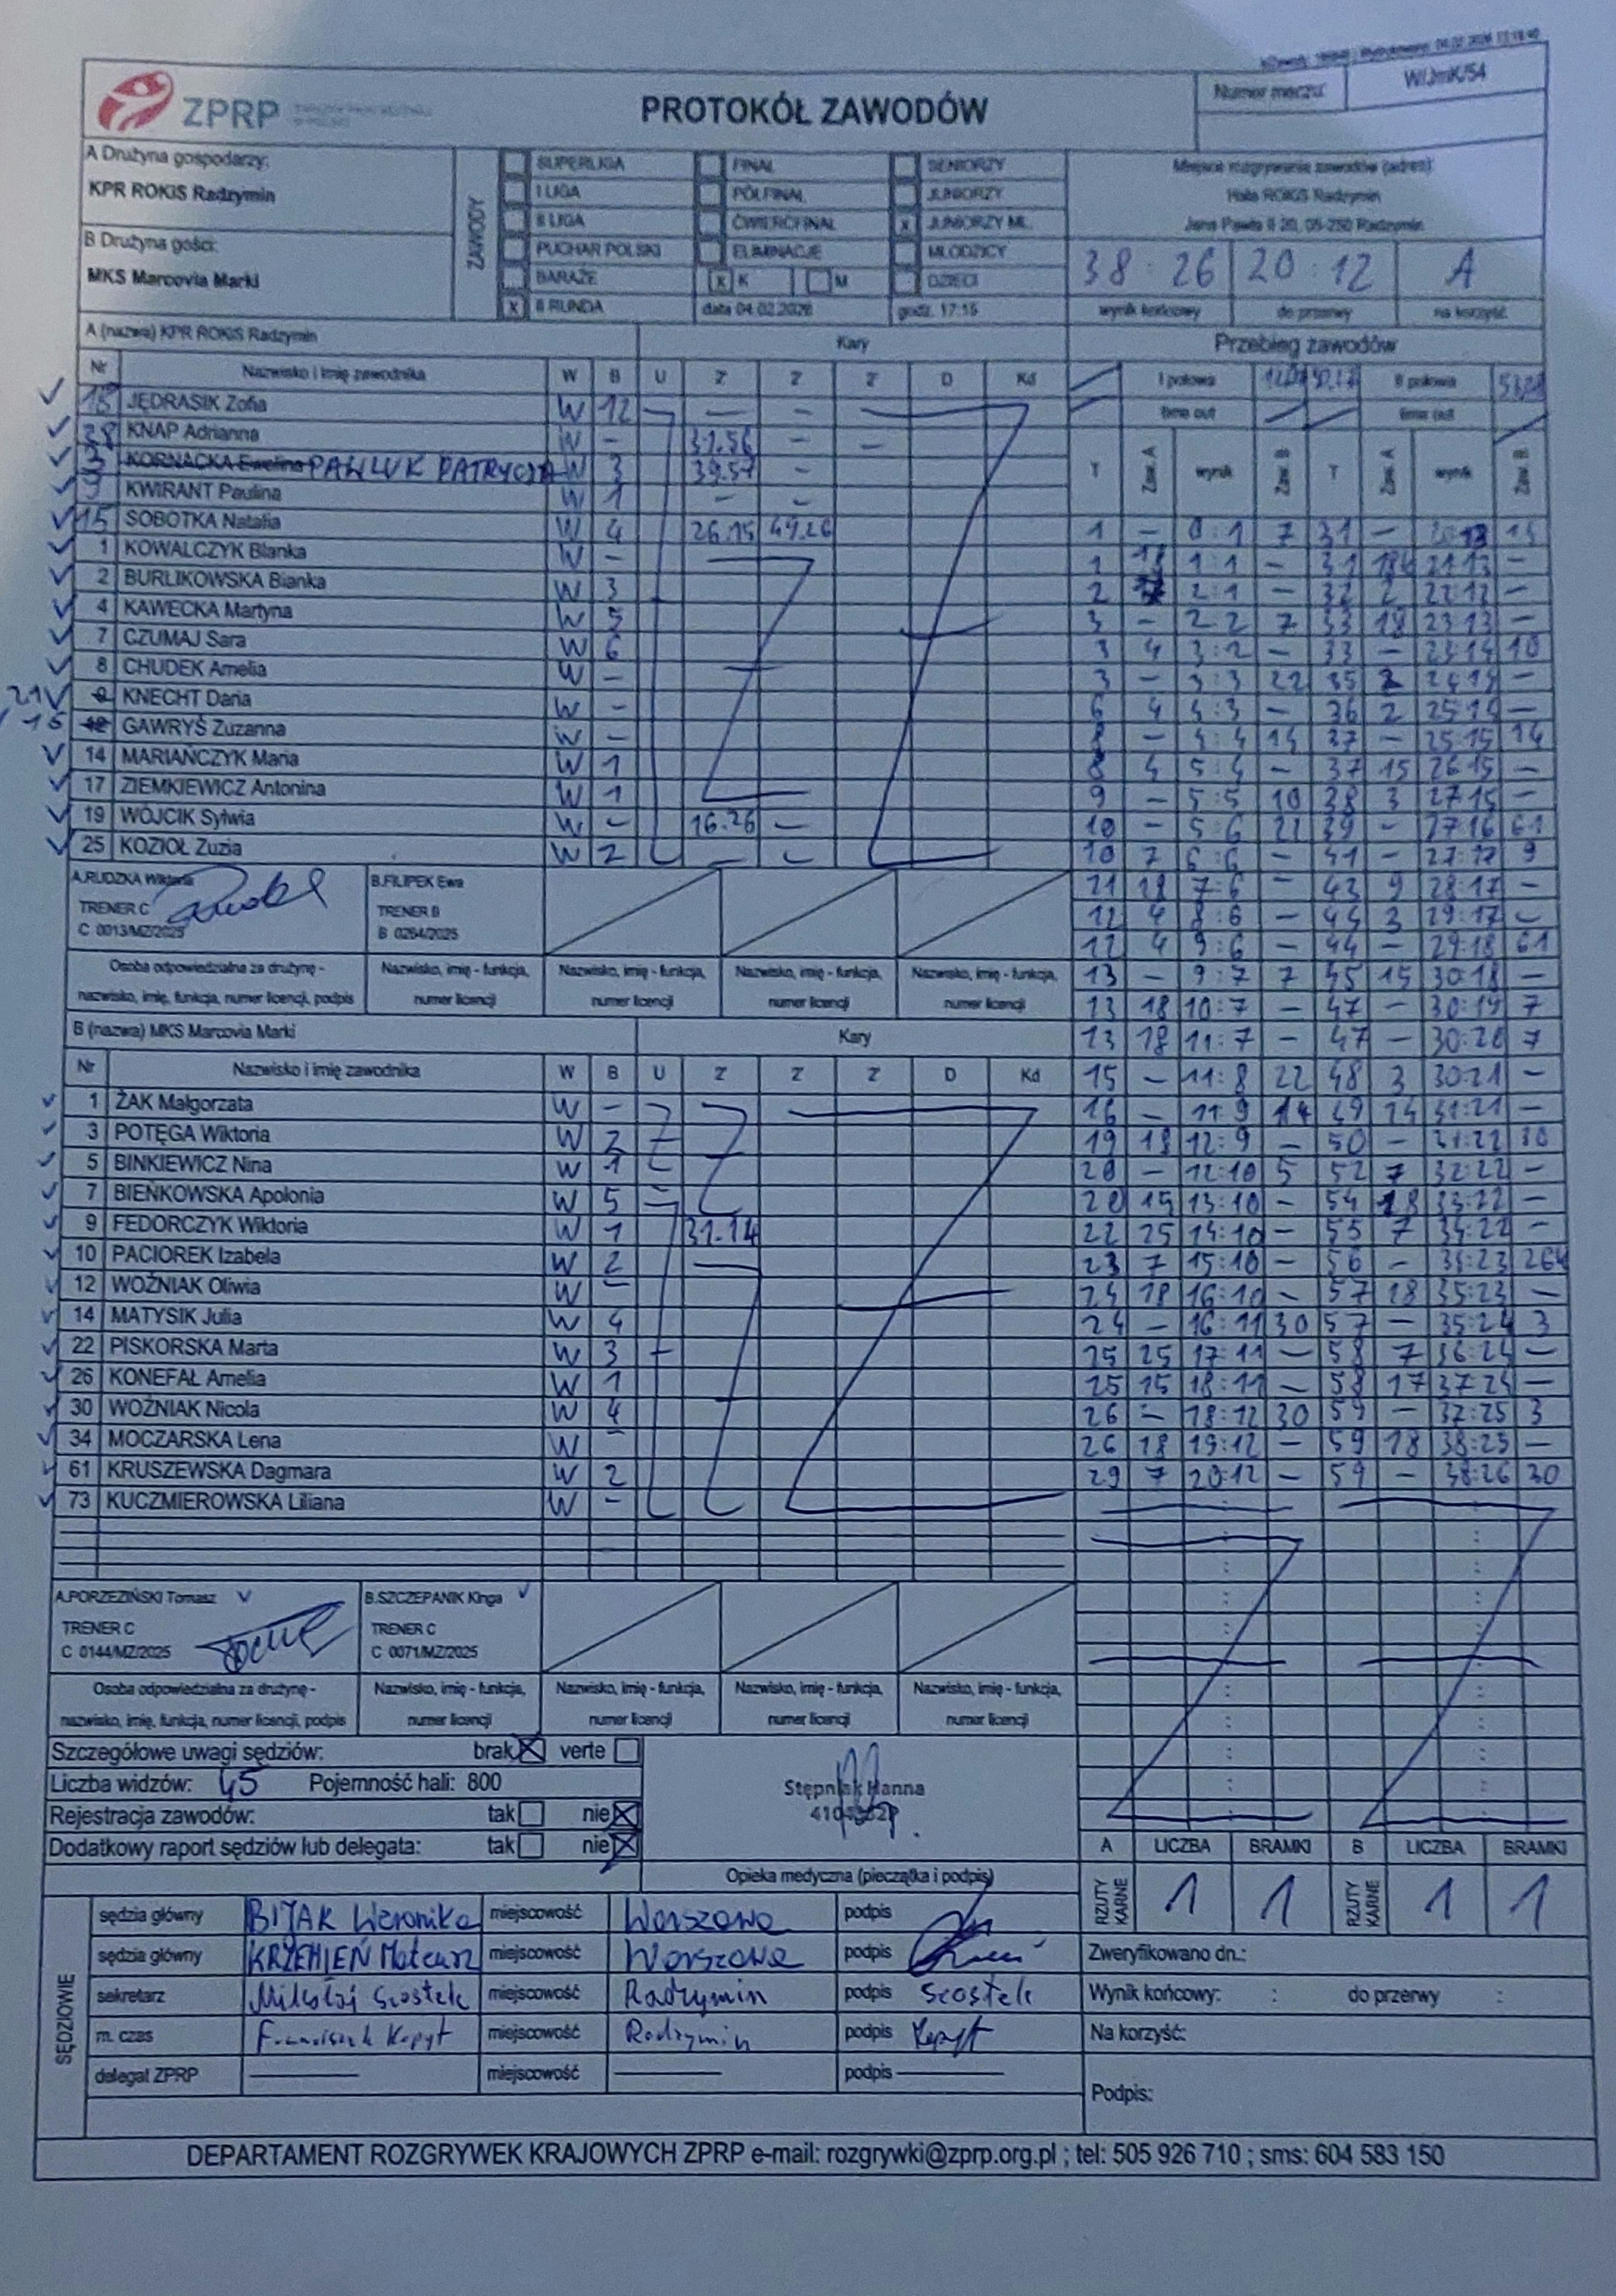 ZPRP
PROTOKÓŁ ZAWODÓW
Numer meczu:
W/JmK/54
A Drużyna gospodarzy:
KPR ROKIS Radzymin
B Drużyna gości:
MKS Marcovia Marki
ZAWODY
SUPERLIGA
I LIGA
II LIGA
PUCHAR POLSKI
BARAŻE
x II RUNDA
FINAŁ
PÓŁFINAŁ
ĆWIERĆFINAŁ
ELIMINACJE
x K
M
data 04.02.2026
SENIORZY
JUNIORZY
x JUNIORZY MŁ.
MŁODZICY
DZIECI
godz. 17:15
Miejsce rozgrywania zawodów (adres):
Hala ROKIS Radzymin
Jana Pawła II 20, 05-250 Radzymin
38 : 26
20 : 12
A
wynik końcowy
do przerwy
na korzyść
A (nazwa) KPR ROKIS Radzymin
Kary
Nr Nazwisko i imię zawodnika W B U Z Z Z D Kd
18 JĘDRASIK Zofia W 12 — —
28 KNAP Adrianna W - 31.56 — —
3 KORNACKA Ewelina PAWLUK PATRYCJA W 3 39.57 —
9 KWIRANT Paulina W 1 — —
15 SOBOTKA Natalia W 4 26.15 49.26
1 KOWALCZYK Blanka W -
2 BURLIKOWSKA Bianka W 3
4 KAWECKA Martyna W 5
7 CZUMAJ Sara W 6
8 CHUDEK Amelia W -
21 KNECHT Daria W -
16 GAWRYŚ Zuzanna W -
14 MARIAŃCZYK Maria W 1
17 ZIEMKIEWICZ Antonina W 1
19 WÓJCIK Sylwia W - 16.26 —
25 KOZIOŁ Zuzia W 2
A.RUDZKA Wiktoria
TRENER C
C 0013/MZ/2025
B.FILIPEK Ewa
TRENER B
B 0264/2025
Osoba odpowiedzialna za drużynę -
nazwisko, imię, funkcja, numer licencji, podpis
Nazwisko, imię - funkcja,
numer licencji
Nazwisko, imię - funkcja,
numer licencji
Nazwisko, imię - funkcja,
numer licencji
Nazwisko, imię - funkcja,
numer licencji
B (nazwa) MKS Marcovia Marki
Kary
Nr Nazwisko i imię zawodnika W B U Z Z Z D Kd
1 ŻAK Małgorzata W -
3 POTĘGA Wiktoria W 2
5 BINKIEWICZ Nina W 1
7 BIEŃKOWSKA Apolonia W 5
9 FEDORCZYK Wiktoria W 1 31.14
10 PACIOREK Izabela W 2
12 WOŹNIAK Oliwia W -
14 MATYSIK Julia W 4
22 PISKORSKA Marta W 3
26 KONEFAŁ Amelia W 1
30 WOŹNIAK Nicola W 4
34 MOCZARSKA Lena W -
61 KRUSZEWSKA Dagmara W 2
73 KUCZMIEROWSKA Liliana W -
A.PORZEZIŃSKI Tomasz
TRENER C
C 0144/MZ/2025
B.SZCZEPANIK Kinga
TRENER C
C 0071/MZ/2025
Osoba odpowiedzialna za drużynę -
nazwisko, imię, funkcja, numer licencji, podpis
Nazwisko, imię - funkcja,
numer licencji
Nazwisko, imię - funkcja,
numer licencji
Nazwisko, imię - funkcja,
numer licencji
Nazwisko, imię - funkcja,
numer licencji
Przebieg zawodów
I połowa
II połowa
time out
time out
T Zaw. A wynik Zaw. B T Zaw. A wynik Zaw. B
1 — 0:1 7 31 —
1 1:1 — 31 21:13 —
2 2:1 — 32 2 22:13 —
3 — 2:2 7 33 18 23:13 —
3 4 3:2 — 33 — 23:14 10
3 — 3:3 22 35 2 24:14 —
6 4 4:3 — 36 2 25:14 —
8 — 4:4 14 37 — 25:15 14
8 4 5:4 — 37 15 26:15 —
9 — 5:5 10 38 3 27:15 —
10 — 5:6 22 39 — 27:16 61
10 7 6:6 — 41 — 27:17 9
11 18 7:6 — 43 9 28:17 —
12 4 8:6 — 44 3 29:17 —
12 4 9:6 — 44 — 29:18 61
13 — 9:7 7 45 15 30:18 —
13 18 10:7 — 47 — 30:19 7
13 18 11:7 — 47 — 30:20 7
15 — 11:8 22 48 3 30:21 —
16 — 11:9 14 49 14 31:21 —
19 18 12:9 — 50 — 31:22 30
20 — 12:10 5 52 7 32:22 —
20 15 13:10 — 54 18 33:22 —
22 25 14:10 — 55 7 34:22 —
23 7 15:10 — 56 — 34:23 26k
24 18 16:10 — 57 18 35:23 —
24 — 16:11 30 57 — 35:24 3
25 25 17:11 — 58 7 36:24 —
25 15 18:11 — 58 17 37:24 —
26 — 18:12 30 59 — 37:25 3
26 18 19:12 — 59 18 38:25 —
29 7 20:12 — 59 — 38:26 30
Szczegółowe uwagi sędziów: brak X verte
Liczba widzów: 45 Pojemność hali: 800
Rejestracja zawodów: tak nie X
Dodatkowy raport sędziów lub delegata: tak nie X
Stępniak Hanna
Opieka medyczna (pieczątka i podpis)
A LICZBA BRAMKI B LICZBA BRAMKI
RZUTY KARNE 1 1 RZUTY KARNE 1 1
SĘDZIOWIE
sędzia główny BIJAK Weronika miejscowość Warszawa podpis
sędzia główny KRZEMIEŃ Mateusz miejscowość Warszawa podpis
sekretarz Mikołaj Szostek miejscowość Radzymin podpis Szostek
m. czas Franciszek Kopyt miejscowość Radzymin podpis Kopyt
delegat ZPRP — miejscowość — podpis —
Zweryfikowano dn.:
Wynik końcowy: : do przerwy :
Na korzyść:
Podpis:
DEPARTAMENT ROZGRYWEK KRAJOWYCH ZPRP e-mail: rozgrywki@zprp.org.pl ; tel: 505 926 710 ; sms: 604 583 150